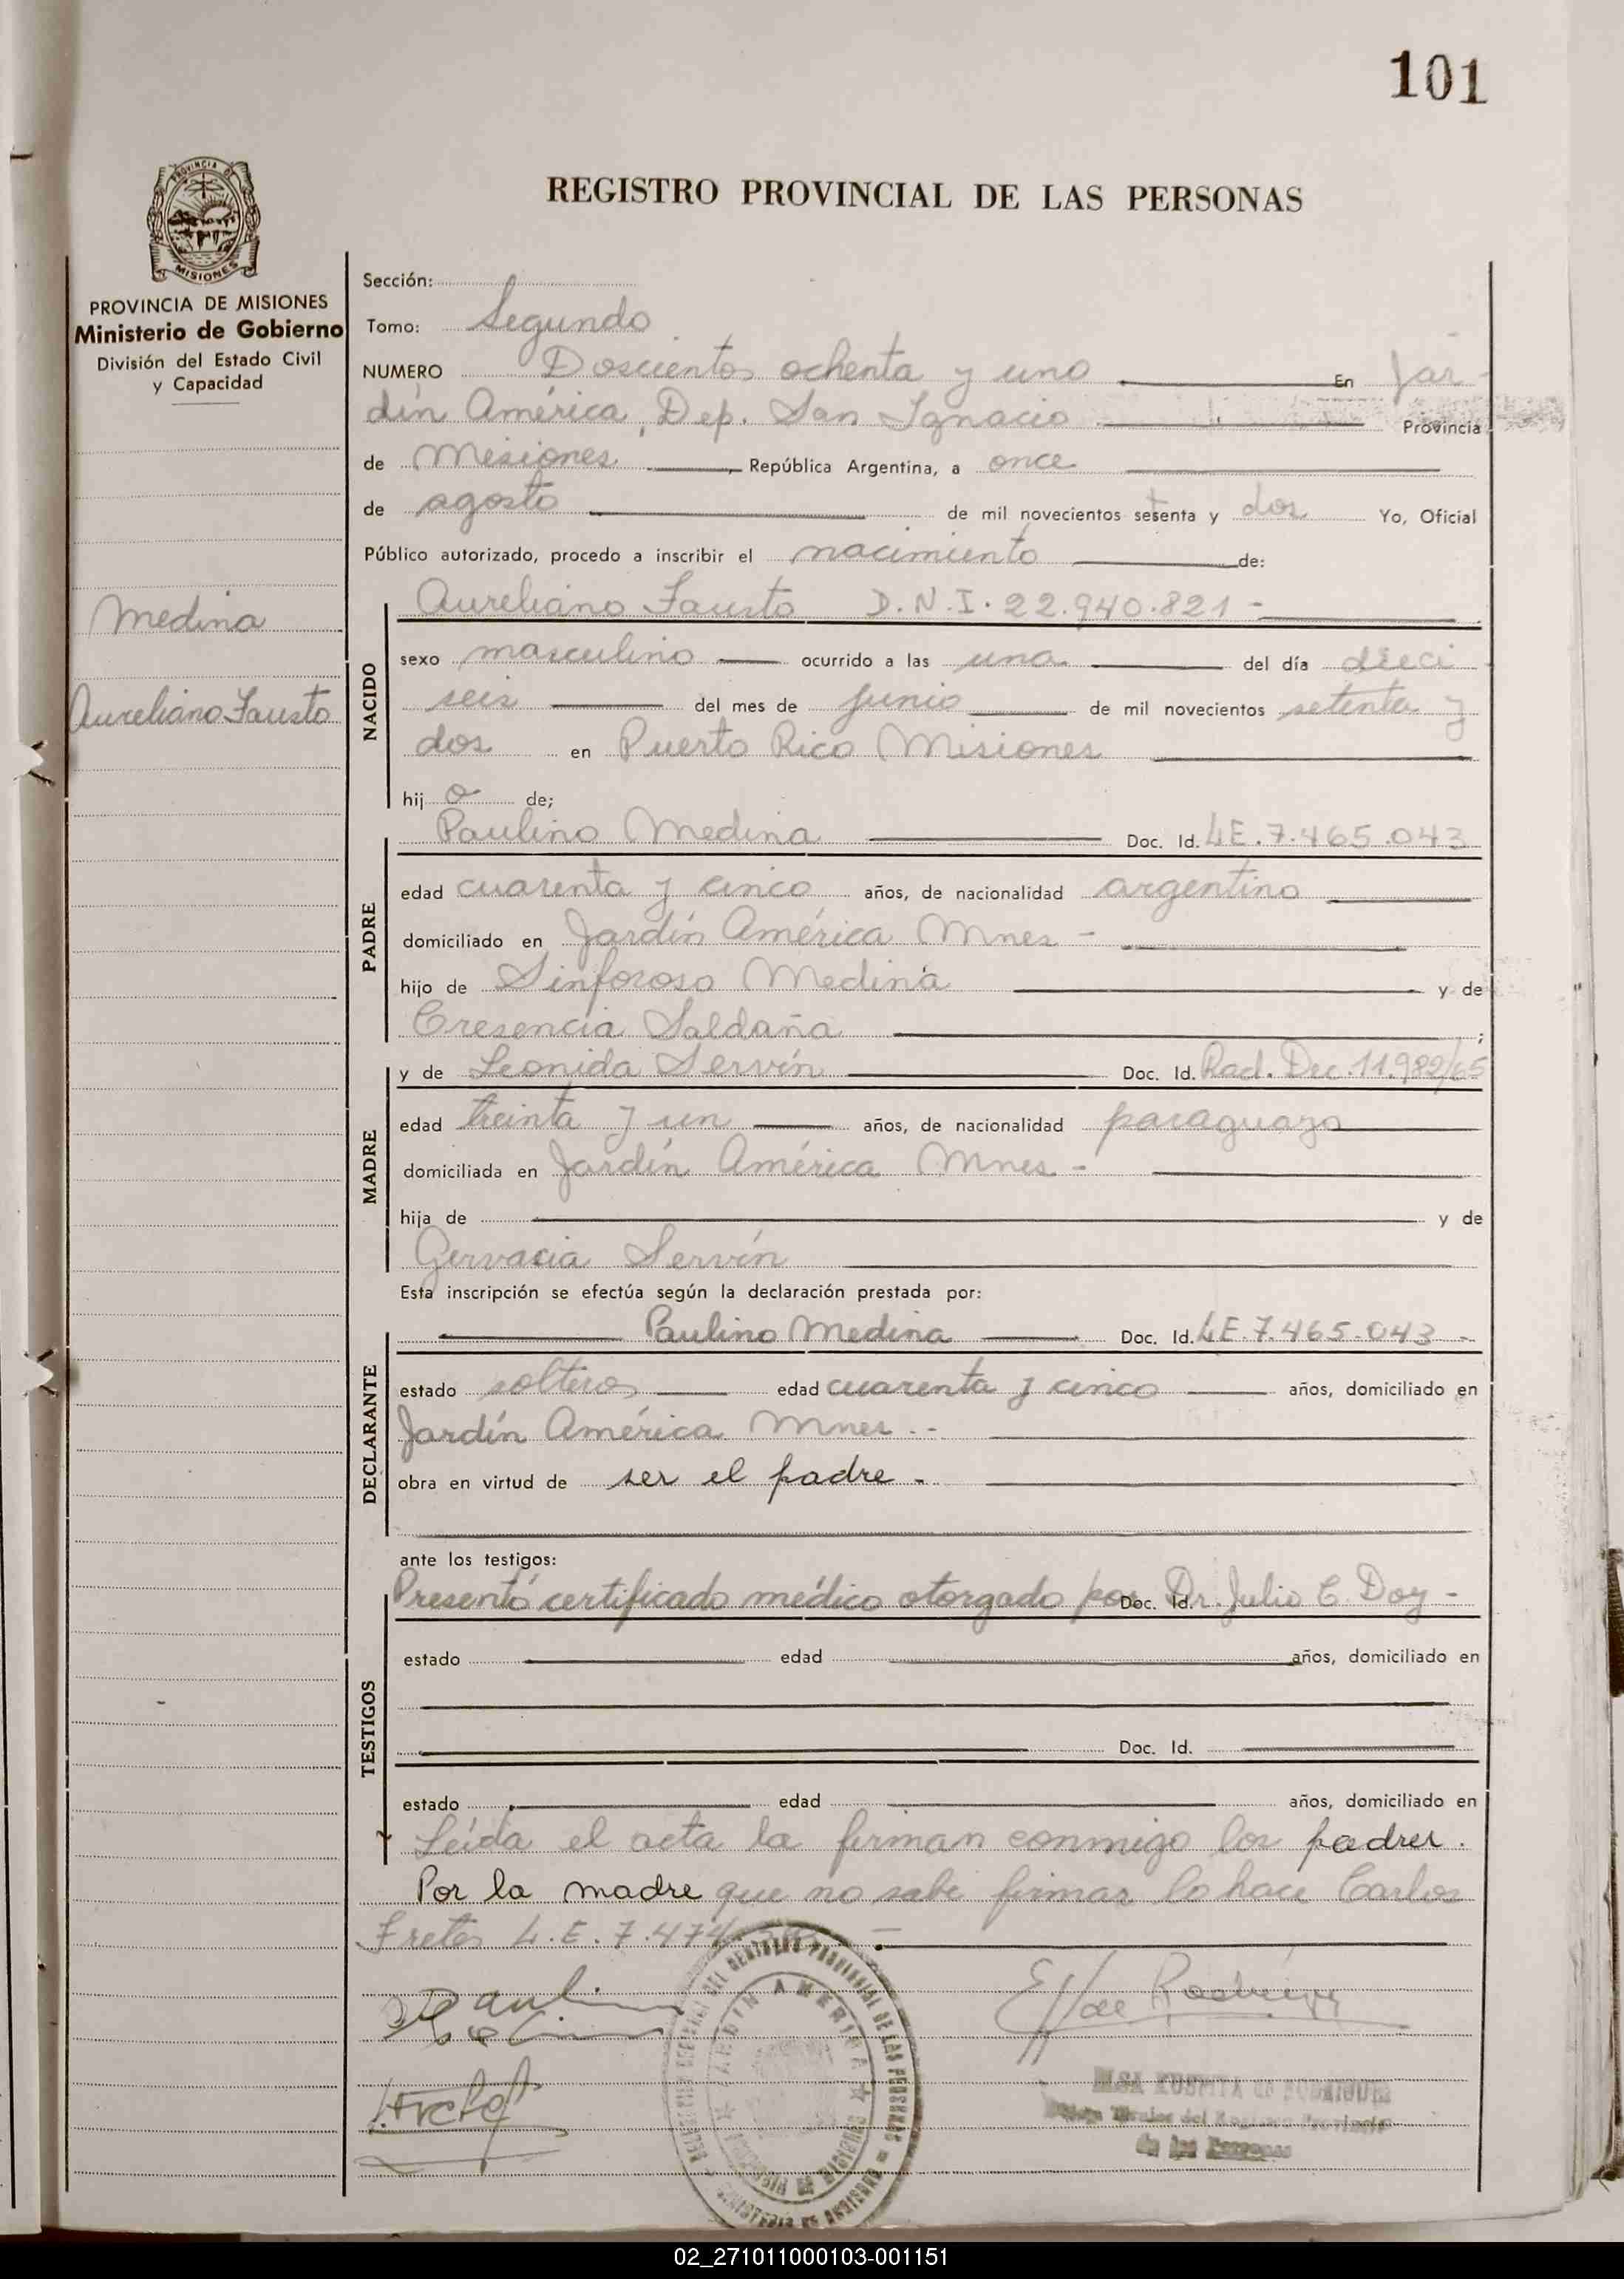 101
REGISTRO PROVINCIAL DE LAS PERSONAS
PROVINCIA DE MISIONES
Ministerio de Gobierno
División del Estado Civil
y Capacidad
Medina
Aureliano Fausto
Sección:
Tomo: Segundo
NUMERO Doscientos ochenta y uno En Jar-
dín América, Dep. San Ignacio Provincia
de Misiones, República Argentina, a once
de agosto de mil novecientos setenta y dos Yo, Oficial
Público autorizado, procedo a inscribir el nacimiento de:
NACIDO
Aureliano Fausto D.N.I. 22.940.821 -
sexo masculino ocurrido a las una del día dieci
seis del mes de junio de mil novecientos setenta y
dos en Puerto Rico Misiones
hij o de;
PADRE
Paulino Medina Doc. Id. LE. 7.465.043
edad cuarenta y cinco años, de nacionalidad argentino
domiciliado en Jardín América Mnes -
hijo de Sinforoso Medina y de
Cresencia Saldaña ;
MADRE
y de Leonida Servín Doc. Id. Rad. Dec. 11.982/65
edad treinta y un años, de nacionalidad paraguaya
domiciliada en Jardín América Mnes -
hija de y de
Gervacia Servín
Esta inscripción se efectúa según la declaración prestada por:
DECLARANTE
Paulino Medina Doc. Id. LE. 7.465.043 -
estado soltero edad cuarenta y cinco años, domiciliado en
Jardín América Mnes. -
obra en virtud de ser el padre -
ante los testigos:
TESTIGOS
Presentó certificado médico otorgado por Doc. Id. Dr. Julio C. Doy -
estado edad años, domiciliado en
Doc. Id.
estado edad años, domiciliado en
Leída el acta la firman conmigo los padres.
Por la madre que no sabe firmar lo hace Carlos
Fretes L.E. 7.474
JARDIN AMERICA
de las Personas
02_271011000103-001151